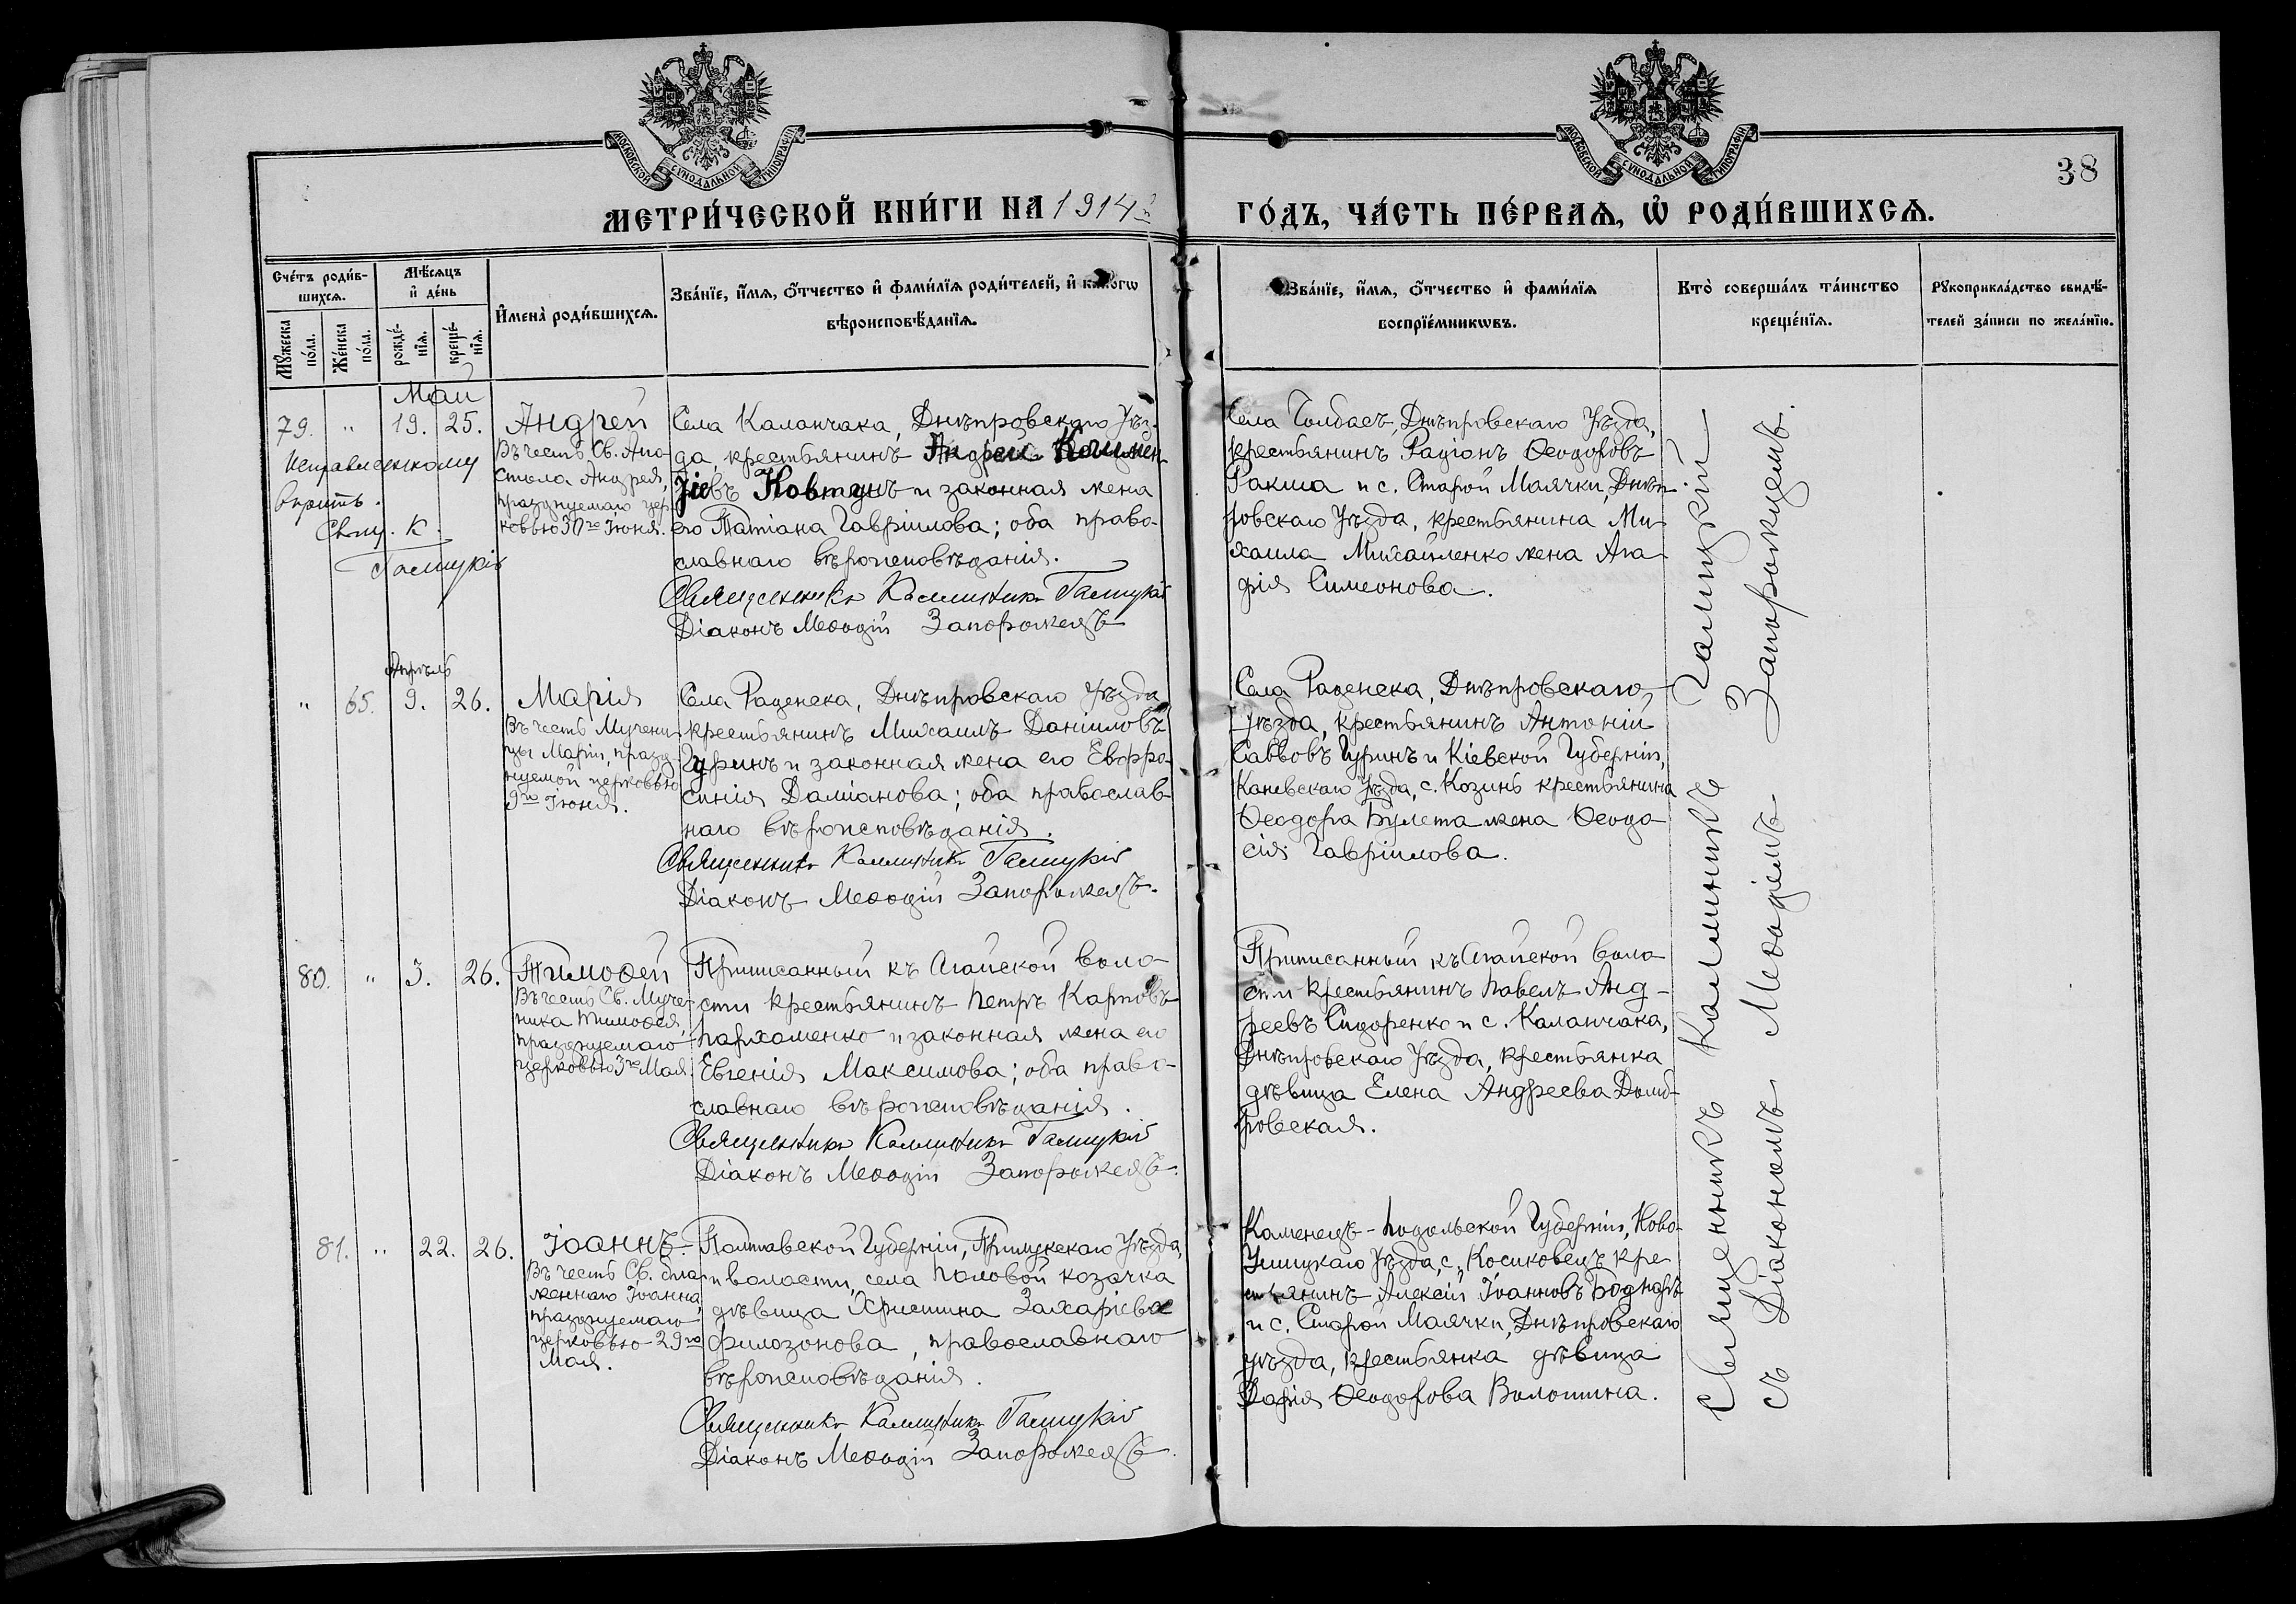 МОСКОВСКОЙ СУНОДАЛЬНОЙ ТИПОГРАФІИ
МОСКОВСКОЙ СУНОДАЛЬНОЙ ТИПОГРАФІИ
38
МЕТРИ́ЧЕСКОЙ КНИ́ГИ НА 1914й
ГО́ДЪ, ЧА́СТЬ ПЕ́РВАѦ, Ѽ РОДИ́ВШИХСѦ.
Сче́тъ роди́в-
шихсѧ.
Мꙋ́жеска по́ла.
Же́нска по́ла.
Мѣ́сѧцъ
и҆ де́нь
рожде́-
нїѧ.
креще́-
нїѧ.
И҆мена̀ роди́вшихсѧ.
Зва́нїе, и҆́мѧ, ѻ҆́тчество и҆ фами́лїѧ роди́телей, и҆ како́гѡ
вѣроисповѣ́данїѧ.
Зва́нїе, и҆́мѧ, ѻ҆́тчество и҆ фами́лїѧ
воспрїе́мникѡвъ.
Кто̀ соверша́лъ та́инство
креще́нїѧ.
Рꙋкоприкла́дство свидѣ́-
телей за́писи по жела́нїю.
Май
79. " 19. 25.
Исправленному
вѣрить.
Свящ. К.
Галицкій
Андрей
Въ честь Св. Апо-
стола Андрея,
празднуемаго цер-
ковью 30го Іюня.
Села Каланчака, Днѣпровскаго Уѣз-
да, крестьянинъ Андрей
Ковтунъ и законная жена
его Татіана Гавріилова; оба право-
славнаго вѣроисповѣданія.
Священникъ Каллиникъ Галицкій
Діаконъ Меѳодій Запорожецъ
Села Чолбасъ, Днѣпровскаго Уѣзда,
крестьянинъ Радіонъ Ѳеодоровъ
Ракша и с. Старой Маячки, Днѣп-
ровскаго Уѣзда, крестьянина Ми-
хаила Михайленко жена Ага-
фія Симеонова.
Апрѣль
" 65. 9. 26.
Марія
Въ честь Мучени-
цы Маріи, празд-
нуемой церковью
9го Іюня.
Села Раденска, Днѣпровскаго Уѣзда
крестьянинъ Михаилъ Даніиловъ
Гуринъ и законная жена его Евфро-
синія Даміанова; оба православ-
наго вѣроисповѣданія.
Священникъ Каллиникъ Галицкій
Діаконъ Меѳодій Запорожецъ.
Села Раденска, Днѣпровскаго
Уѣзда, крестьянинъ Антоній
Савовъ Гуринъ и Кіевской Губерніи,
Каневскаго Уѣзда, с. Козинъ крестьянина
Ѳеодора Булета жена Ѳеодо-
сія Гавріилова.
80. " 3. 26.
Тимоѳей
Въ честь Св. Муче-
ника Тимоѳея,
празднуемаго
церковью 3го Мая.
Приписанный къ Агайской воло-
сти крестьянинъ Петръ Карповъ
Пархоменко и законная жена его
Евгенія Максимова; оба право-
славнаго вѣроисповѣданія.
Священникъ Каллиникъ Галицкій
Діаконъ Меѳодій Запорожецъ.
Приписанный къ Агайской воло-
сти крестьянинъ Павелъ Анд-
реевъ Сидоренко и с. Каланчака,
Днѣпровскаго Уѣзда, крестьянка
дѣвица Елена Андреева Домб-
ровская.
81. " 22. 26.
Іоаннъ.
Въ честь Св. бла-
женнаго Іоанна,
празднуемаго
церковью 29го
Мая.
Полтавской Губерніи, Прилукскаго Уѣзда,
и волости, села Паловой козачка
дѣвица Христина Захаріева
Филозонова, православнаго
вѣроисповѣданія.
Священникъ Каллиникъ Галицкій
Діаконъ Меѳодій Запорожецъ.
Каменецъ-Подольской Губерніи, Ново-
Ушицкаго Уѣзда, с. Косиковецъ кре-
стьянинъ Алексій Іоанновъ Боднарь
и с. Старой Маячки, Днѣпровскаго
Уѣзда, крестьянка дѣвица
Дарія Ѳеодорова Волошина.
Священникъ Каллиникъ Галицкій
съ Діакономъ Меѳодіемъ Запорожцемъ.